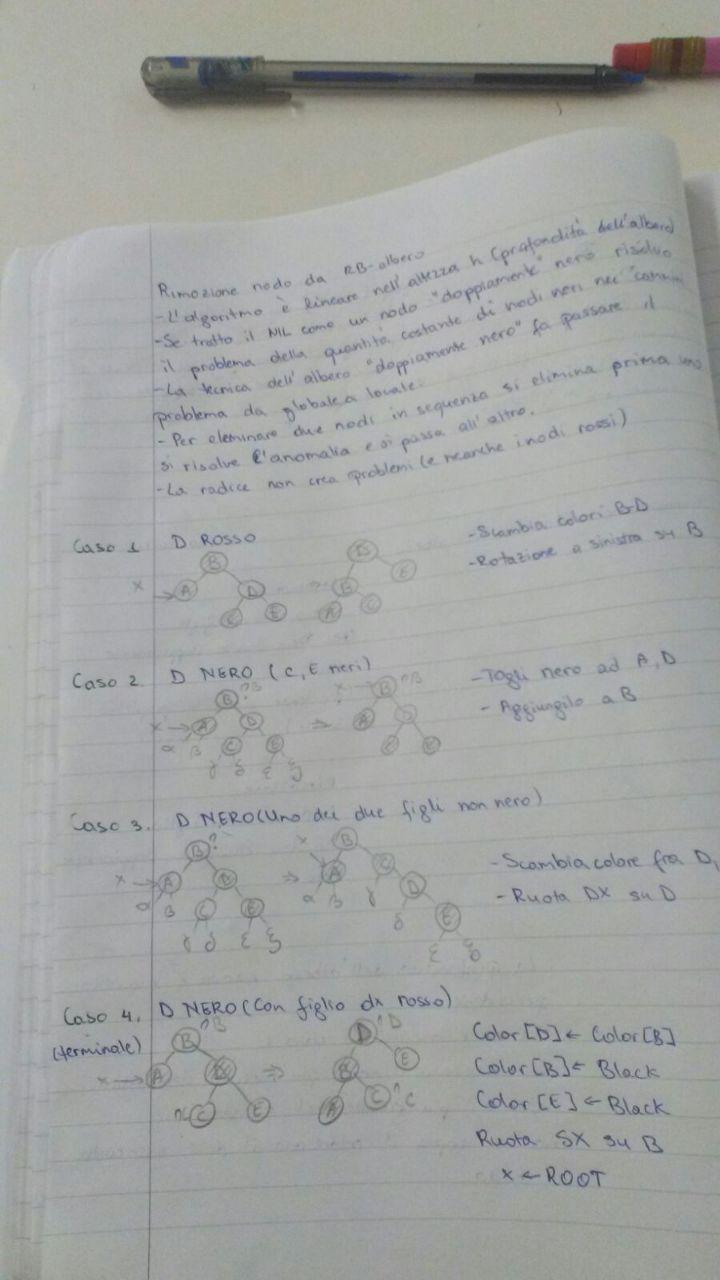 Rimozione nodo da RB-albero
- L'algoritmo è lineare nell'altezza h (profondità dell'albero)
- Se tratto il NIL come un nodo "doppiamente" nero risolvo
il problema della quantità costante di nodi neri nei cammini
- La tecnica dell'albero "doppiamente nero" fa passare il
problema da globale a locale.
- Per eleminare due nodi in sequenza si elimina prima uno
si risolve l'anomalia e si passa all'altro.
- La radice non crea problemi (e neanche i nodi rossi)
Caso 1 D ROSSO
- Scambia colori B-D
- Rotazione a sinistra su B
B
x → A D ⇒ B E
C E A C
Caso 2 D NERO (C, E neri)
- Togli nero ad A, D
- Aggiungilo a B
B ?B ⇒ x B ?B
x → A D A
α β C E
γ δ ε ξ
Caso 3. D NERO (Uno dei due figli non nero)
- Scambia colore fra D,
- Ruota DX su D
B ? ⇒ x B
x → A D A C
α β C E α β γ D
γ δ ε ξ δ E
ε ξ
Caso 4. D NERO (Con figlio dx rosso)
(terminale)
B ?B ⇒ D ?D
x → A E
C E A C ?C
Color[D] ← Color[B]
Color[B] ← Black
Color[E] ← Black
Ruota SX su B
x ← ROOT